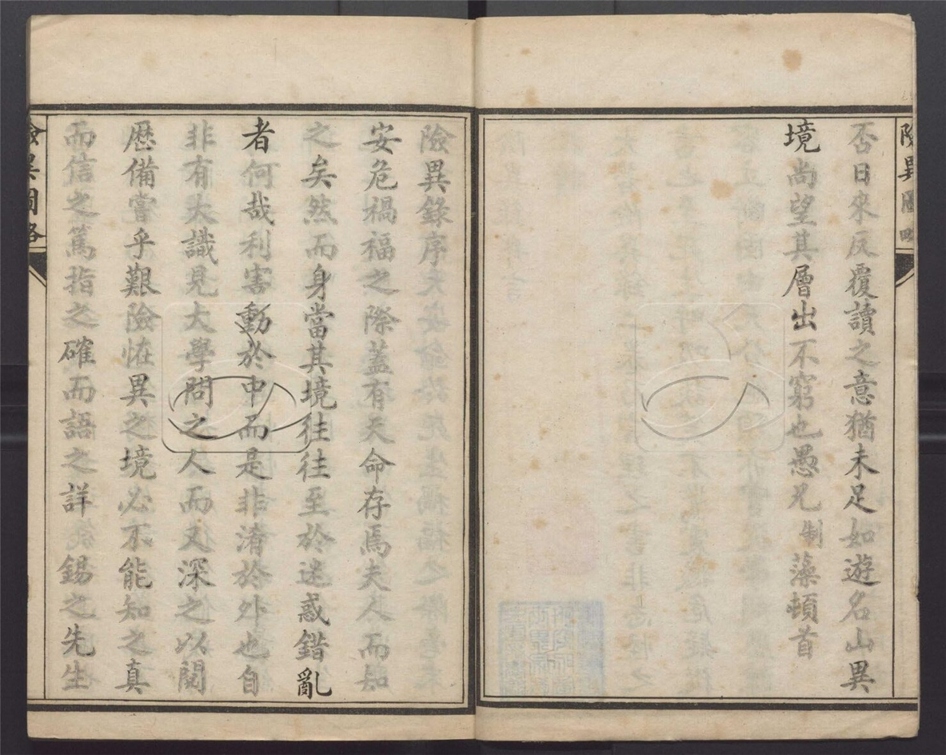 否日來反覆讀之意猶未足如遊名山異
境尚望其層出不窮也愚兄制藻頓首
險異錄序
安危禍福之際蓋有天命存焉夫人而知
之矣然而身當其境往往至於迷惑錯亂
者何哉利害動於中而是非淆於外也自
非有大識見大學問之人而又深之以閱
歷備嘗乎艱險怪異之境必不能知之真
而信之篤指之確而語之詳錫之先生
險異圖略